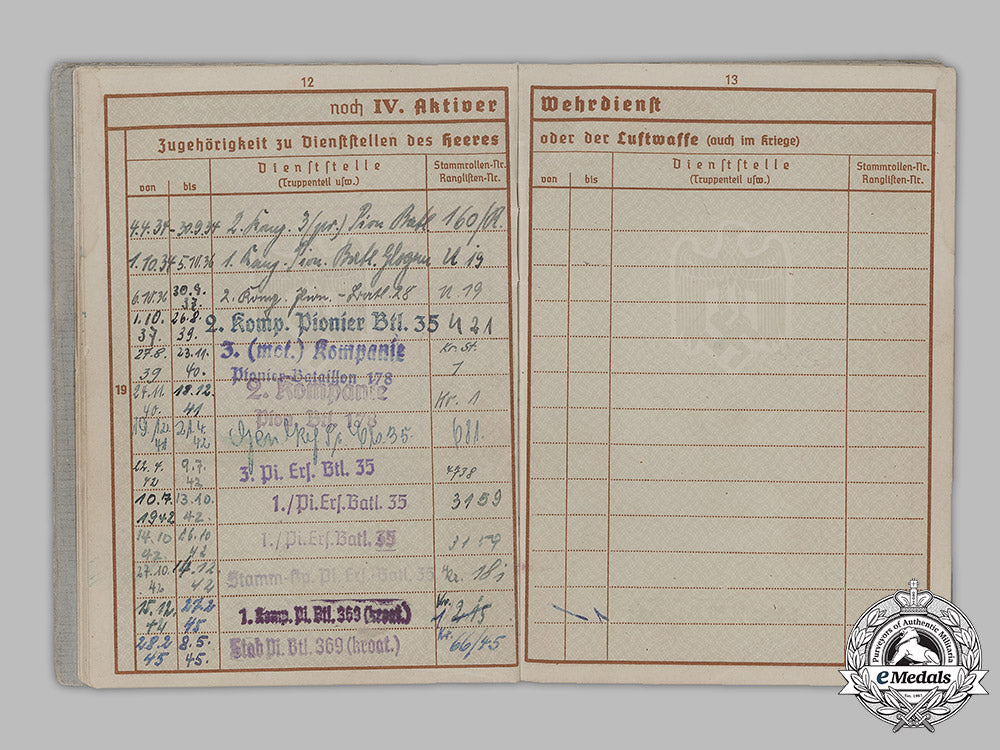 12
noch IV. Aktiver
Zugehörigkeit zu Dienststellen des Heeres
von bis Dienststelle (Truppenteil usw.) Stammrollen-Nr. Ranglisten-Nr.
4.4.34 - 30.9.34 2. Komp. 3 (pr.) Pion Batl 160/R.
1.10.34 5.10.36 1. Komp. Pion. Batl. Glogau U 19
6.10.36 30.9.37. 2. Komp. Pion.-Batl. 28 U. 19
1.10.37. 26.8.39. 2. Komp. Pionier Btl. 35 U 21
27.8.39 23.11.40. 3. (mot.) Kompanie Pionier-Bataillon 178
19
40. 18.12.41 2. Kompanie Pion. Btl. 178 Kr. 1
21.4.42 35. 681.
22.4.42 9.7.42 3. Pi. Ers. Btl. 35 4738
10.7.1942 13.10.42. 1./Pi.Ers.Batl. 35 3159
14.10.42. 26.10.42 1./Pi.Ers.Batl. 35 3159
27.10.42 14.12.42 Stamm-Kp. Pi. Ers.-Batl. 35
15.12.44 27.2.45 1. Komp. Pi. Btl. 369 (kroat.) 245
28.2.45 8.5.45. Stab Pi. Btl. 369 (kroat.) 66/45
13
Wehrdienst
oder der Luftwaffe (auch im Kriege)
von bis Dienststelle (Truppenteil usw.) Stammrollen-Nr. Ranglisten-Nr.
Purveyors of Authentic Militaria
eMedals
Est. 1967